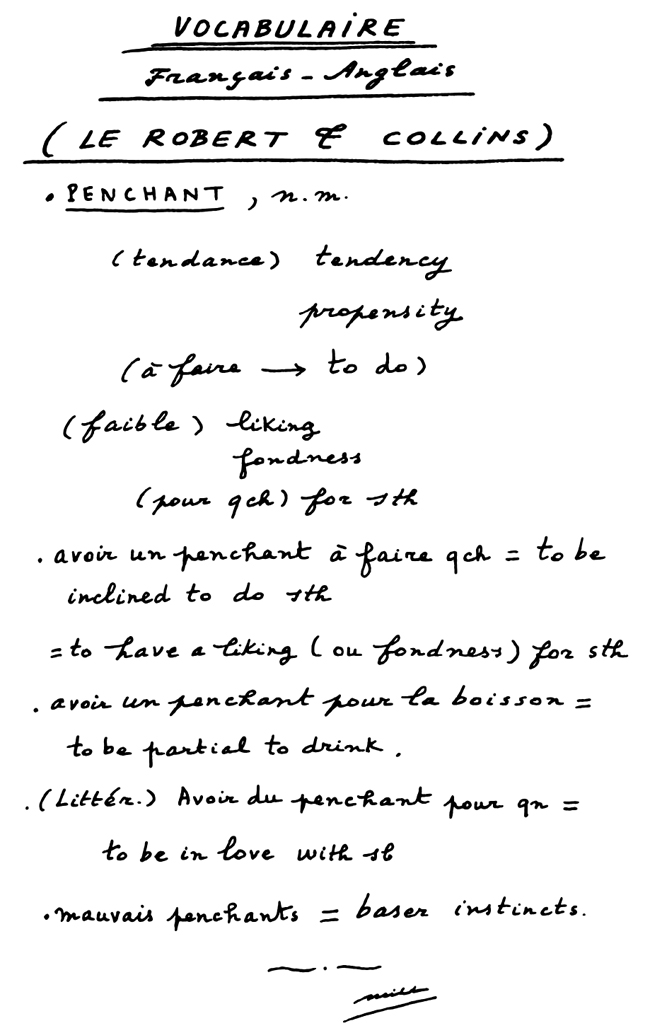 VOCABULAIRE
Français - Anglais
(LE ROBERT & COLLINS)
• PENCHANT, n.m.
(tendance) tendency
propensity
(à faire → to do)
(faible) liking
fondness
(pour qch) for sth
. avoir un penchant à faire qch = to be
inclined to do sth
= to have a liking (ou fondness) for sth
. avoir un penchant pour la boisson =
to be partial to drink.
. (Littér.) Avoir du penchant pour qn =
to be in love with sb
• mauvais penchants = baser instincts.